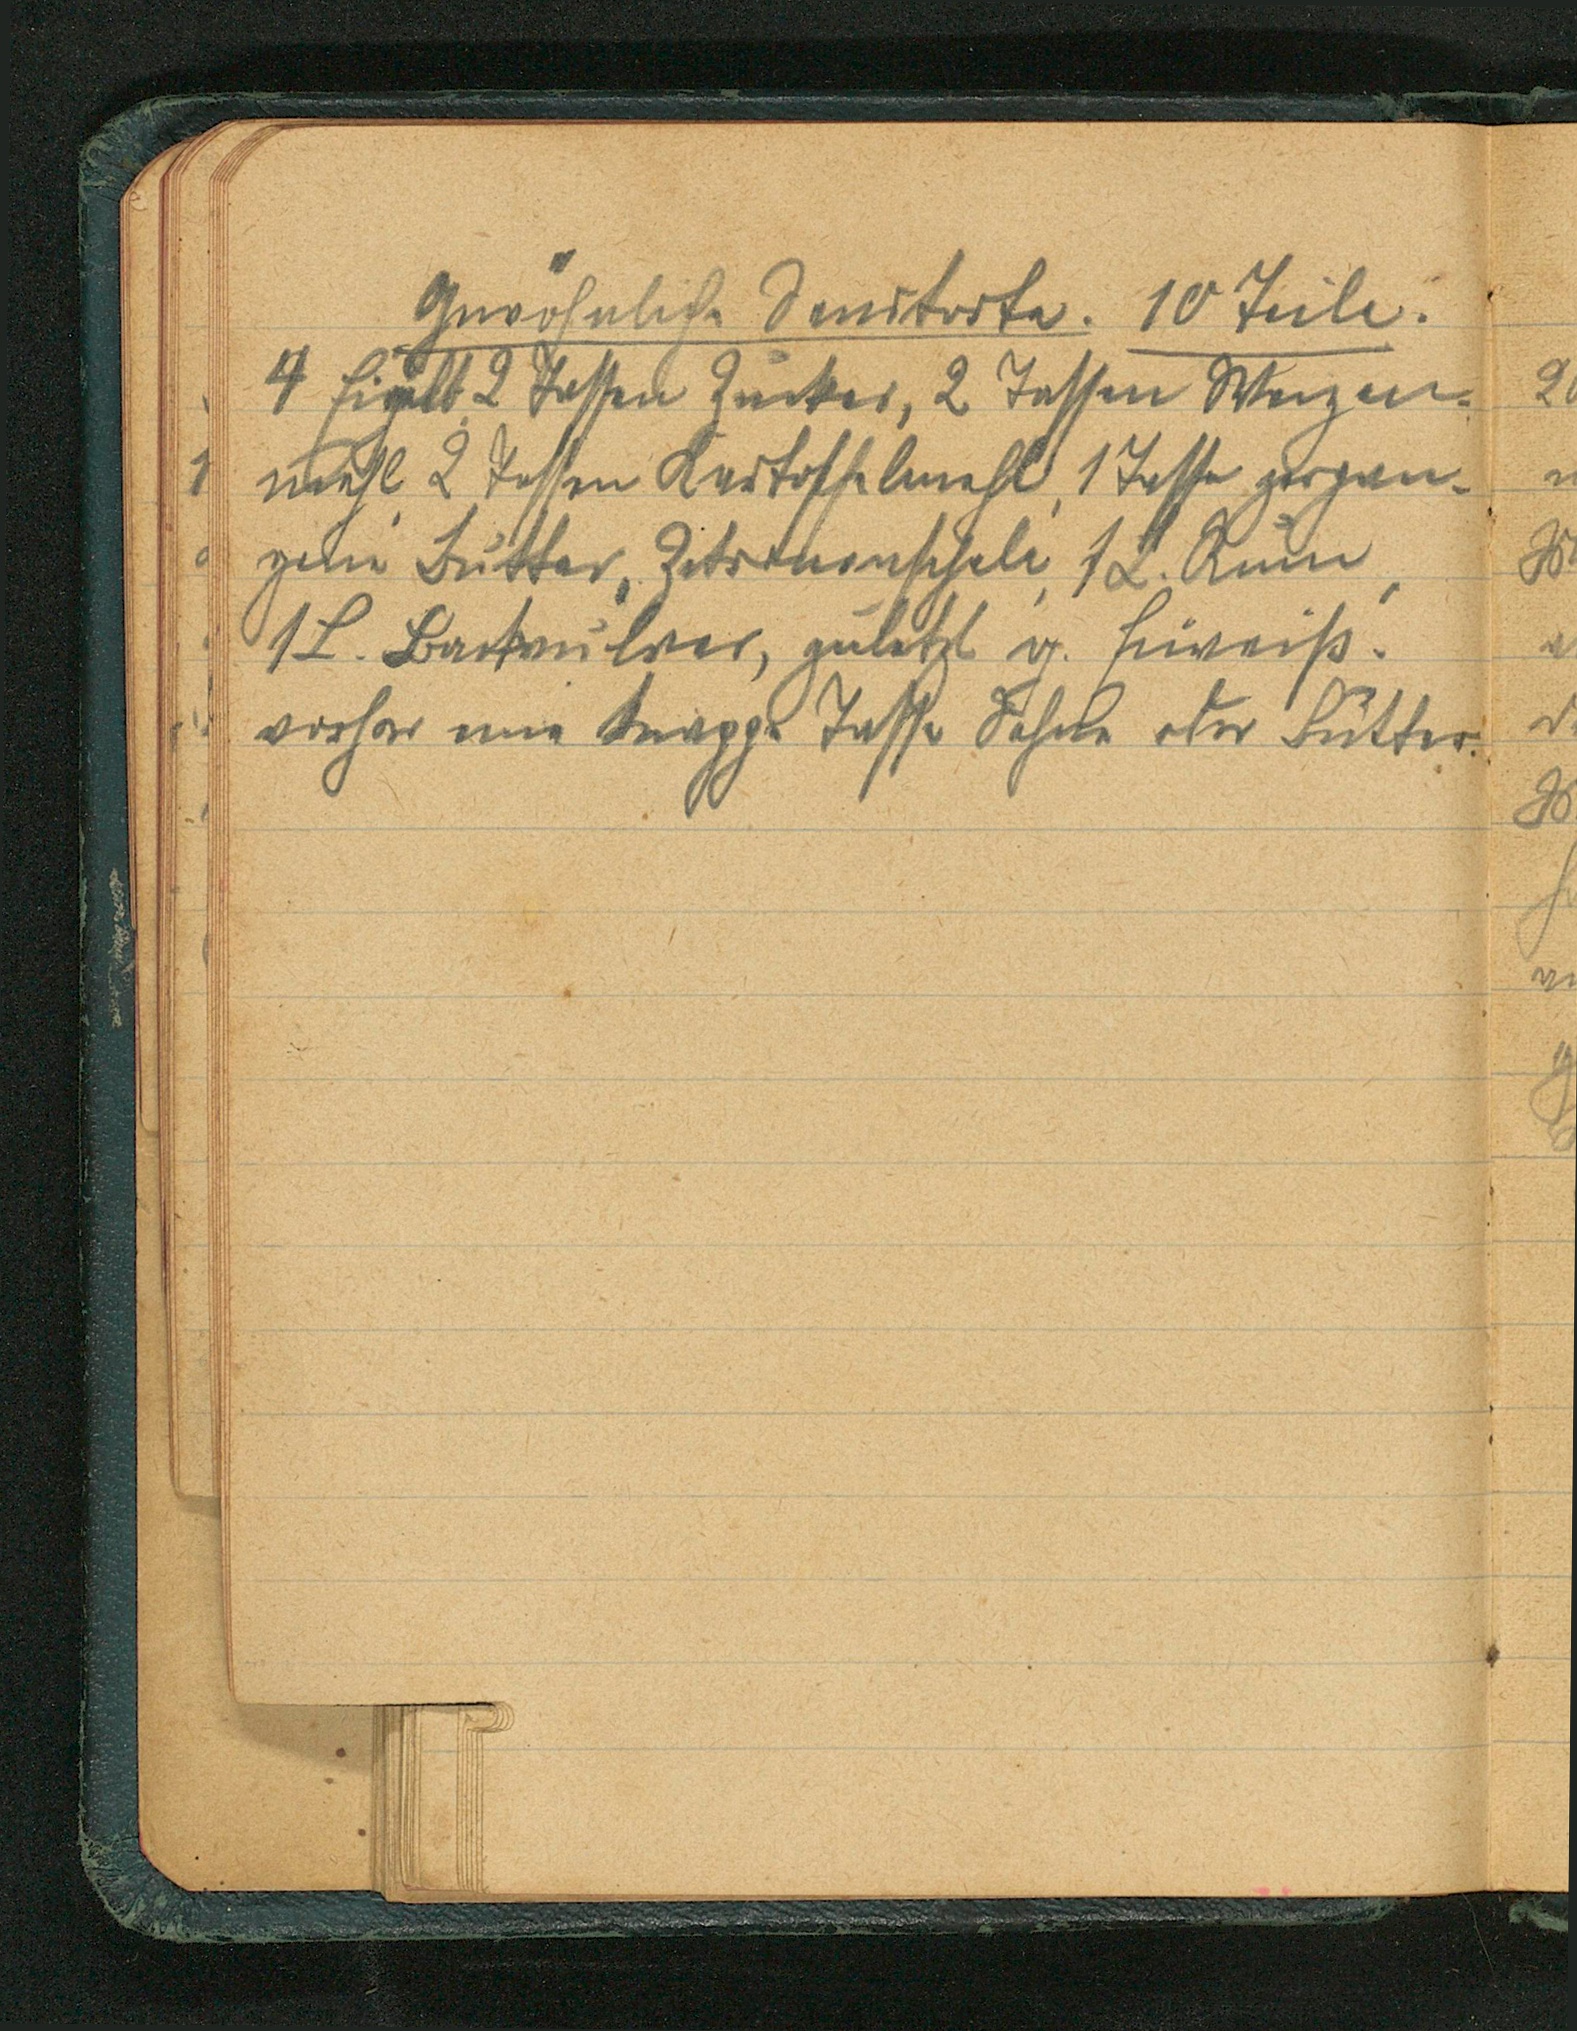 Gewöhnliche Sandtorte. 10 Teile.
4 Eigelb, 2 Tassen Zucker, 2 Tassen Weizen-
mehl, 2 Tassen Kartoffelmehl, 1 Tasse zergan-
gene Butter, Zitronenschale, 1 L. Rum,
1 L. Backpulver, zuletzt Eiweiß.
vorher eine knappe Tasse Sahne oder Butter.